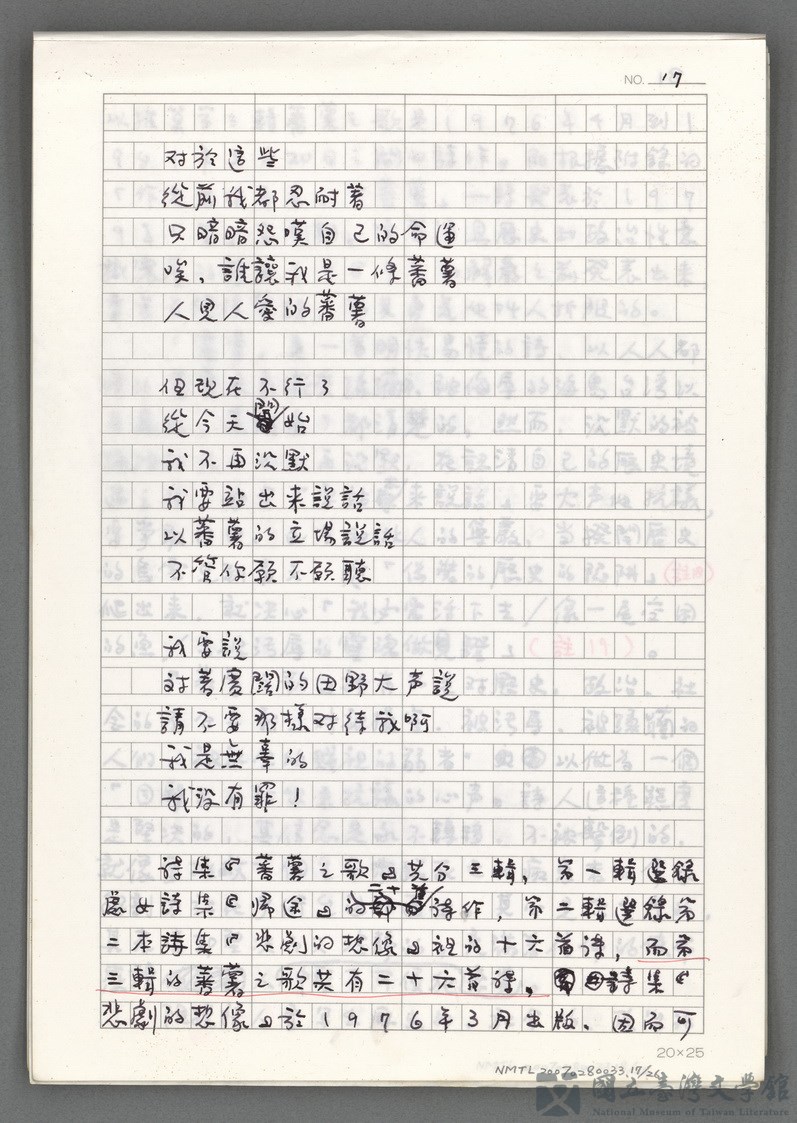 NO. 17
对於這些
從前我都忍耐著
只暗暗怨嘆自己的命運
唉，誰讓我是一條蕃薯
人見人愛的蕃薯
但現在不行了
從今天開始
我不再沉默
我要站出来說話
以蕃薯的立場說話
不管你願不願聽
我要說
对著廣闊的田野大声說
請不要那樣对待我啊
我是無辜的
我沒有罪！
詩集『蕃薯之歌』共分三輯，第一輯選錄
處女詩集『歸途』的二十首詩作，第二輯選錄第
二本詩集『悲劇的想像』裡的十六首詩，而第
三輯的蕃薯之歌共有二十六首詩，詩集『
悲劇的想像』於1976年3月出版，因而可
20×25
NMTL20070280033.17/26
國立臺灣文學館
National Museum of Taiwan Literature